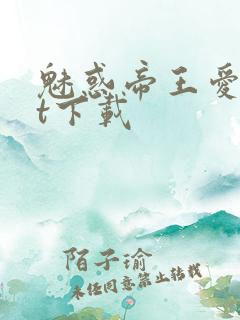 魅惑帝王爱
t下载
陌子瑜
未经同意禁止转载